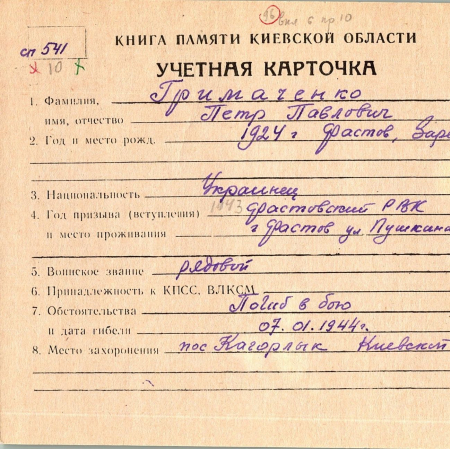 96 вкл 6 пр 10
сп 541
х 10 х
КНИГА ПАМЯТИ КИЕВСКОЙ ОБЛАСТИ
УЧЕТНАЯ КАРТОЧКА
1. Фамилия, Гримаченко
имя, отчество Петр Павлович
2. Год и место рожд. 1924 г Фастов,
3. Национальность Украинец
4. Год призыва (вступления) 1943 Фастовский РВК
и место проживания г Фастов ул Пушкина
5. Воинское звание рядовой
6. Принадлежность к КПСС, ВЛКСМ
7. Обстоятельства Погиб в бою
и дата гибели 07.01.1944г.
8. Место захоронения пос Кагорлык Киевской